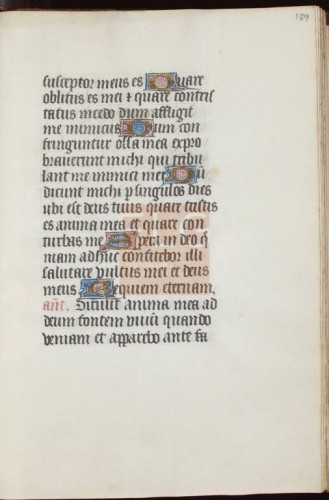 159
susceptor meus es Quare
oblitus es mei ⁊ quare contris
tatus incedo dum affligit
me inimicus Dum con
fringuntur ossa mea expro
braverunt michi qui tribu
lant me inimici mei Dū
dicunt michi p singulos dies
ubi est deus tuus quare tristis
es anima mea et quare con
turbas me Spera in deo q̄
niam adhuc confitebor illi
salutare vultus mei et deus
meus Requiem eternam.
añt. Sitivit anima mea ad
deum fontem vivū quando
veniam et apparebo ante fa